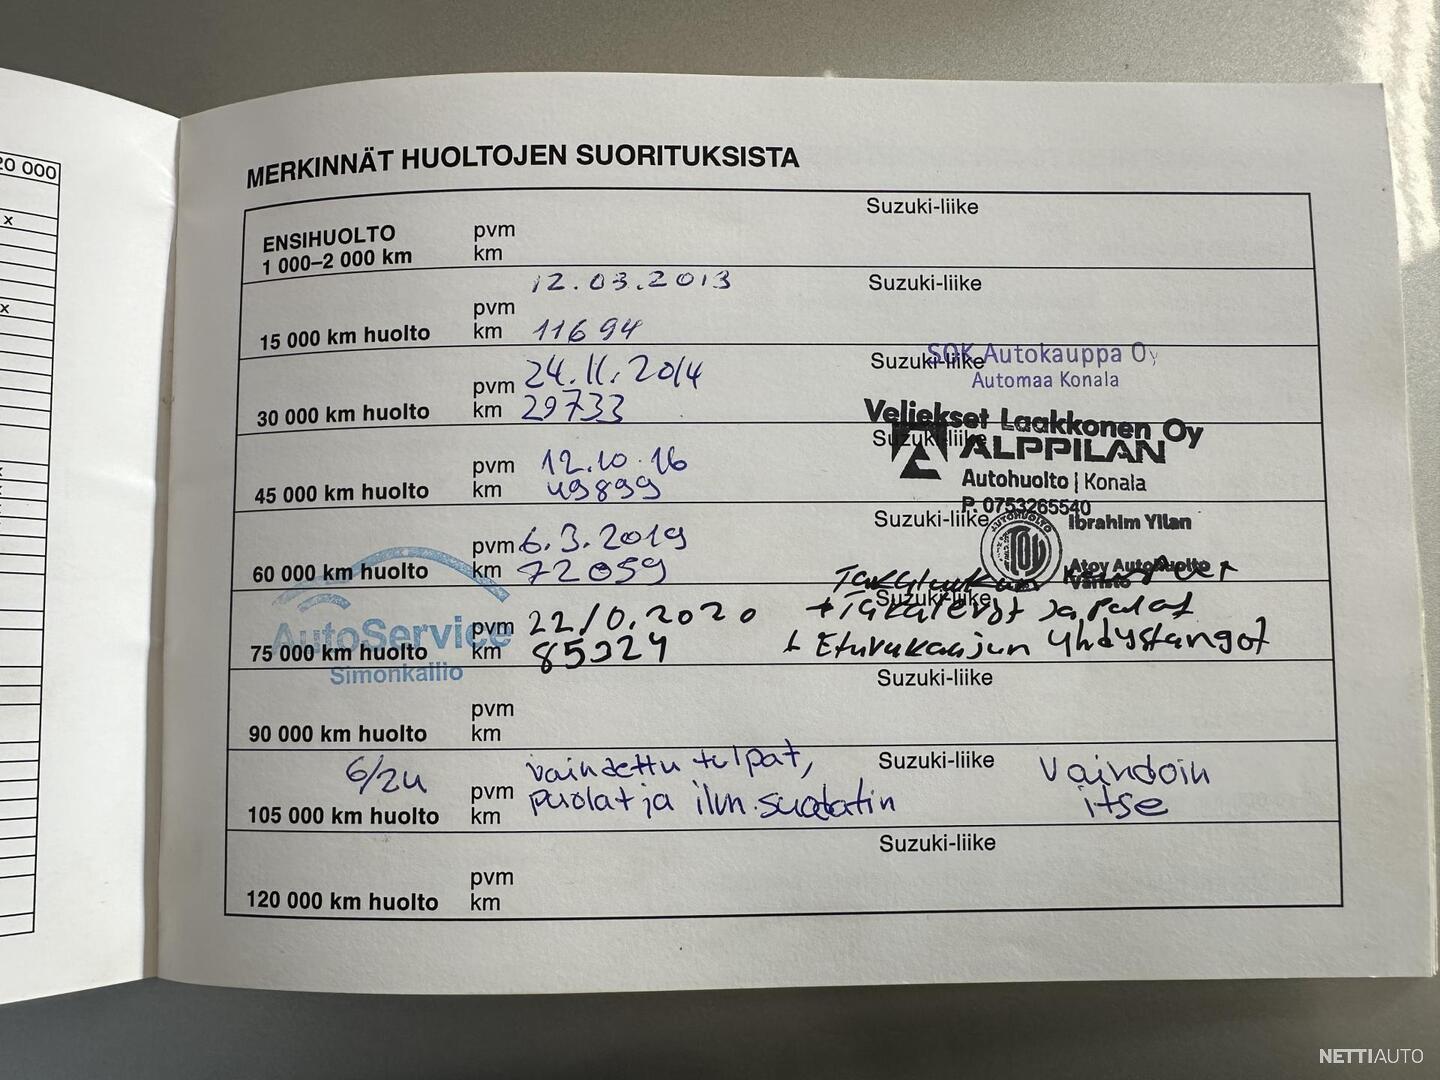 20 000
x
x
MERKINNÄT HUOLTOJEN SUORITUKSISTA
Suzuki-liike
ENSIHUOLTO pvm
1 000–2 000 km km
12.03.2013 Suzuki-liike
pvm
15 000 km huolto km 11694
SOK Autokauppa Oy
Automaa Konala
24.11.2014 Suzuki-liike
pvm
30 000 km huolto km 29733
Veljekset Laakkonen Oy
Suzuki-liike
ALPPILAN
Autohuolto | Konala
P. 0753265540
pvm 12.10.16
45 000 km huolto km 49899
Suzuki-liike
AUTOHUOLTO
Ibrahim Yilan
Atoy Autohuolto
Varisto
pvm 6.3.2019
60 000 km huolto km 72059
Suzuki-liike
+ Takalevyt ja palat
+ Etuvakaajun yhdystangot
pvm 22/0.2020
75 000 km huolto km 85324
AutoService
Simonkallio
Suzuki-liike
pvm
90 000 km huolto km
6/24 vaihdettu tulpat, Suzuki-liike Vaihdoin
pvm puolat ja ilm.suodatin itse
105 000 km huolto km
Suzuki-liike
pvm
120 000 km huolto km
NETTIAUTO